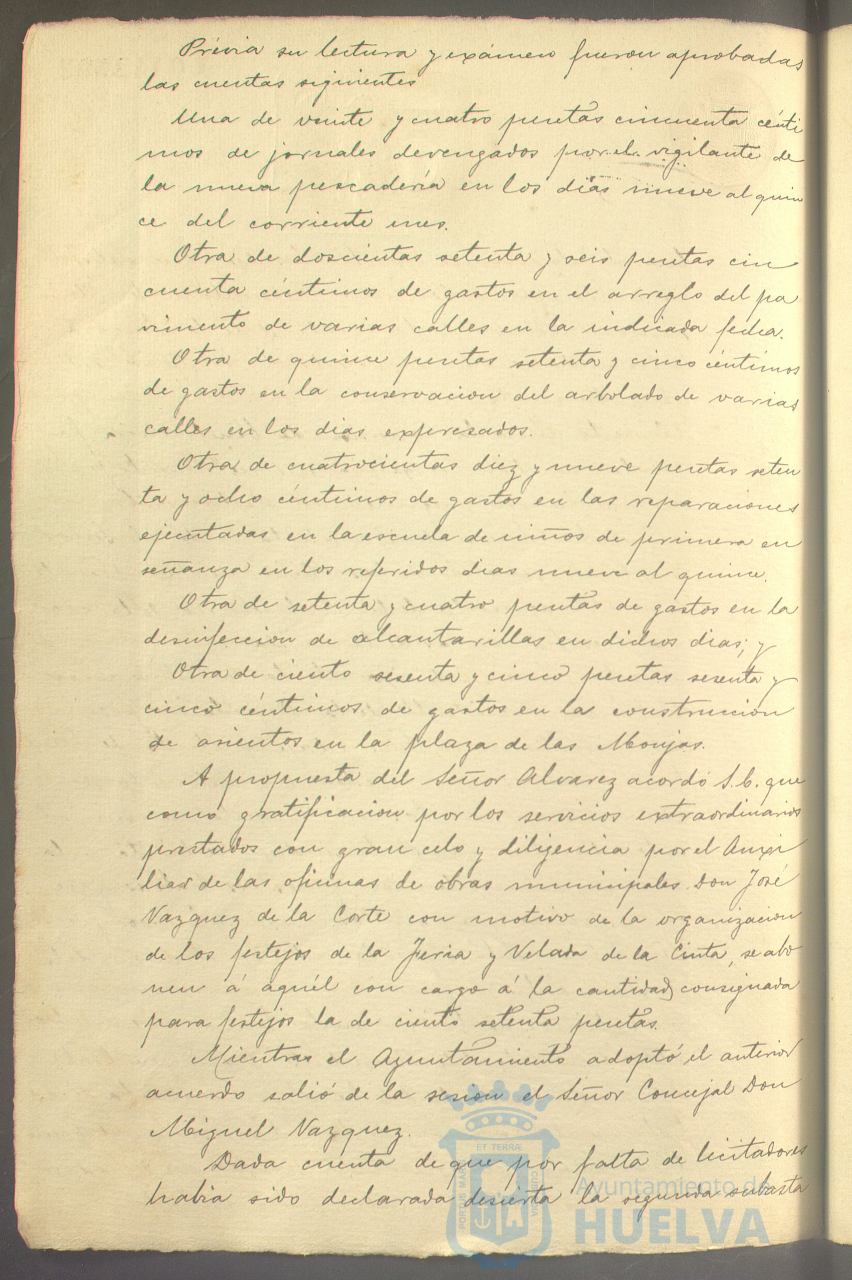 Prévia su lectura y exámen fueron aprobadas
las cuentas siguientes
Una de veinte y cuatro pesetas cincuenta cénti
mos de jornales devengados por el vigilante de
la nueva pescadería en los dias nueve al quin
ce del corriente mes.
Otra de doscientas setenta y seis pesetas cin
cuenta céntimos de gastos en el arreglo del pa
vimento de varias calles en la indicada fecha.
Otra de quince pesetas setenta y cinco céntimos
de gastos en la conservacion del arbolado de varias
calles en los dias expresados.
Otra de cuatrocientas diez y nueve pesetas seten
ta y ocho céntimos de gastos en las reparaciones
ejecutadas en la escuela de niños de primera en
señanza en los referidos dias nueve al quince.
Otra de setenta y cuatro pesetas de gastos en la
desinfeccion de alcantarillas en dichos dias; y
Otra de ciento sesenta y cinco pesetas sesenta y
cinco céntimos de gastos en la construccion
de asientos en la plaza de las Monjas.
A propuesta del Señor Alvarez acordó S.C. que
como gratificacion por los servicios extraordinarios
prestados con gran celo y diligencia por el Auxi
liar de las oficinas de obras municipales Don José
Vazquez de la Corte con motivo de la organizacion
de los festejos de la Feria y Velada de la Cinta, se abo
nen á aquél con cargo á la cantidad consignada
para festejos la de ciento setenta pesetas.
Mientras el Ayuntamiento adoptó el anterior
acuerdo salió de la sesion el Señor Concejal Don
Miguel Vazquez.
Dada cuenta de que por falta de licitadores
habia sido declarada desierta la segunda subasta
Ayuntamiento de
HUELVA